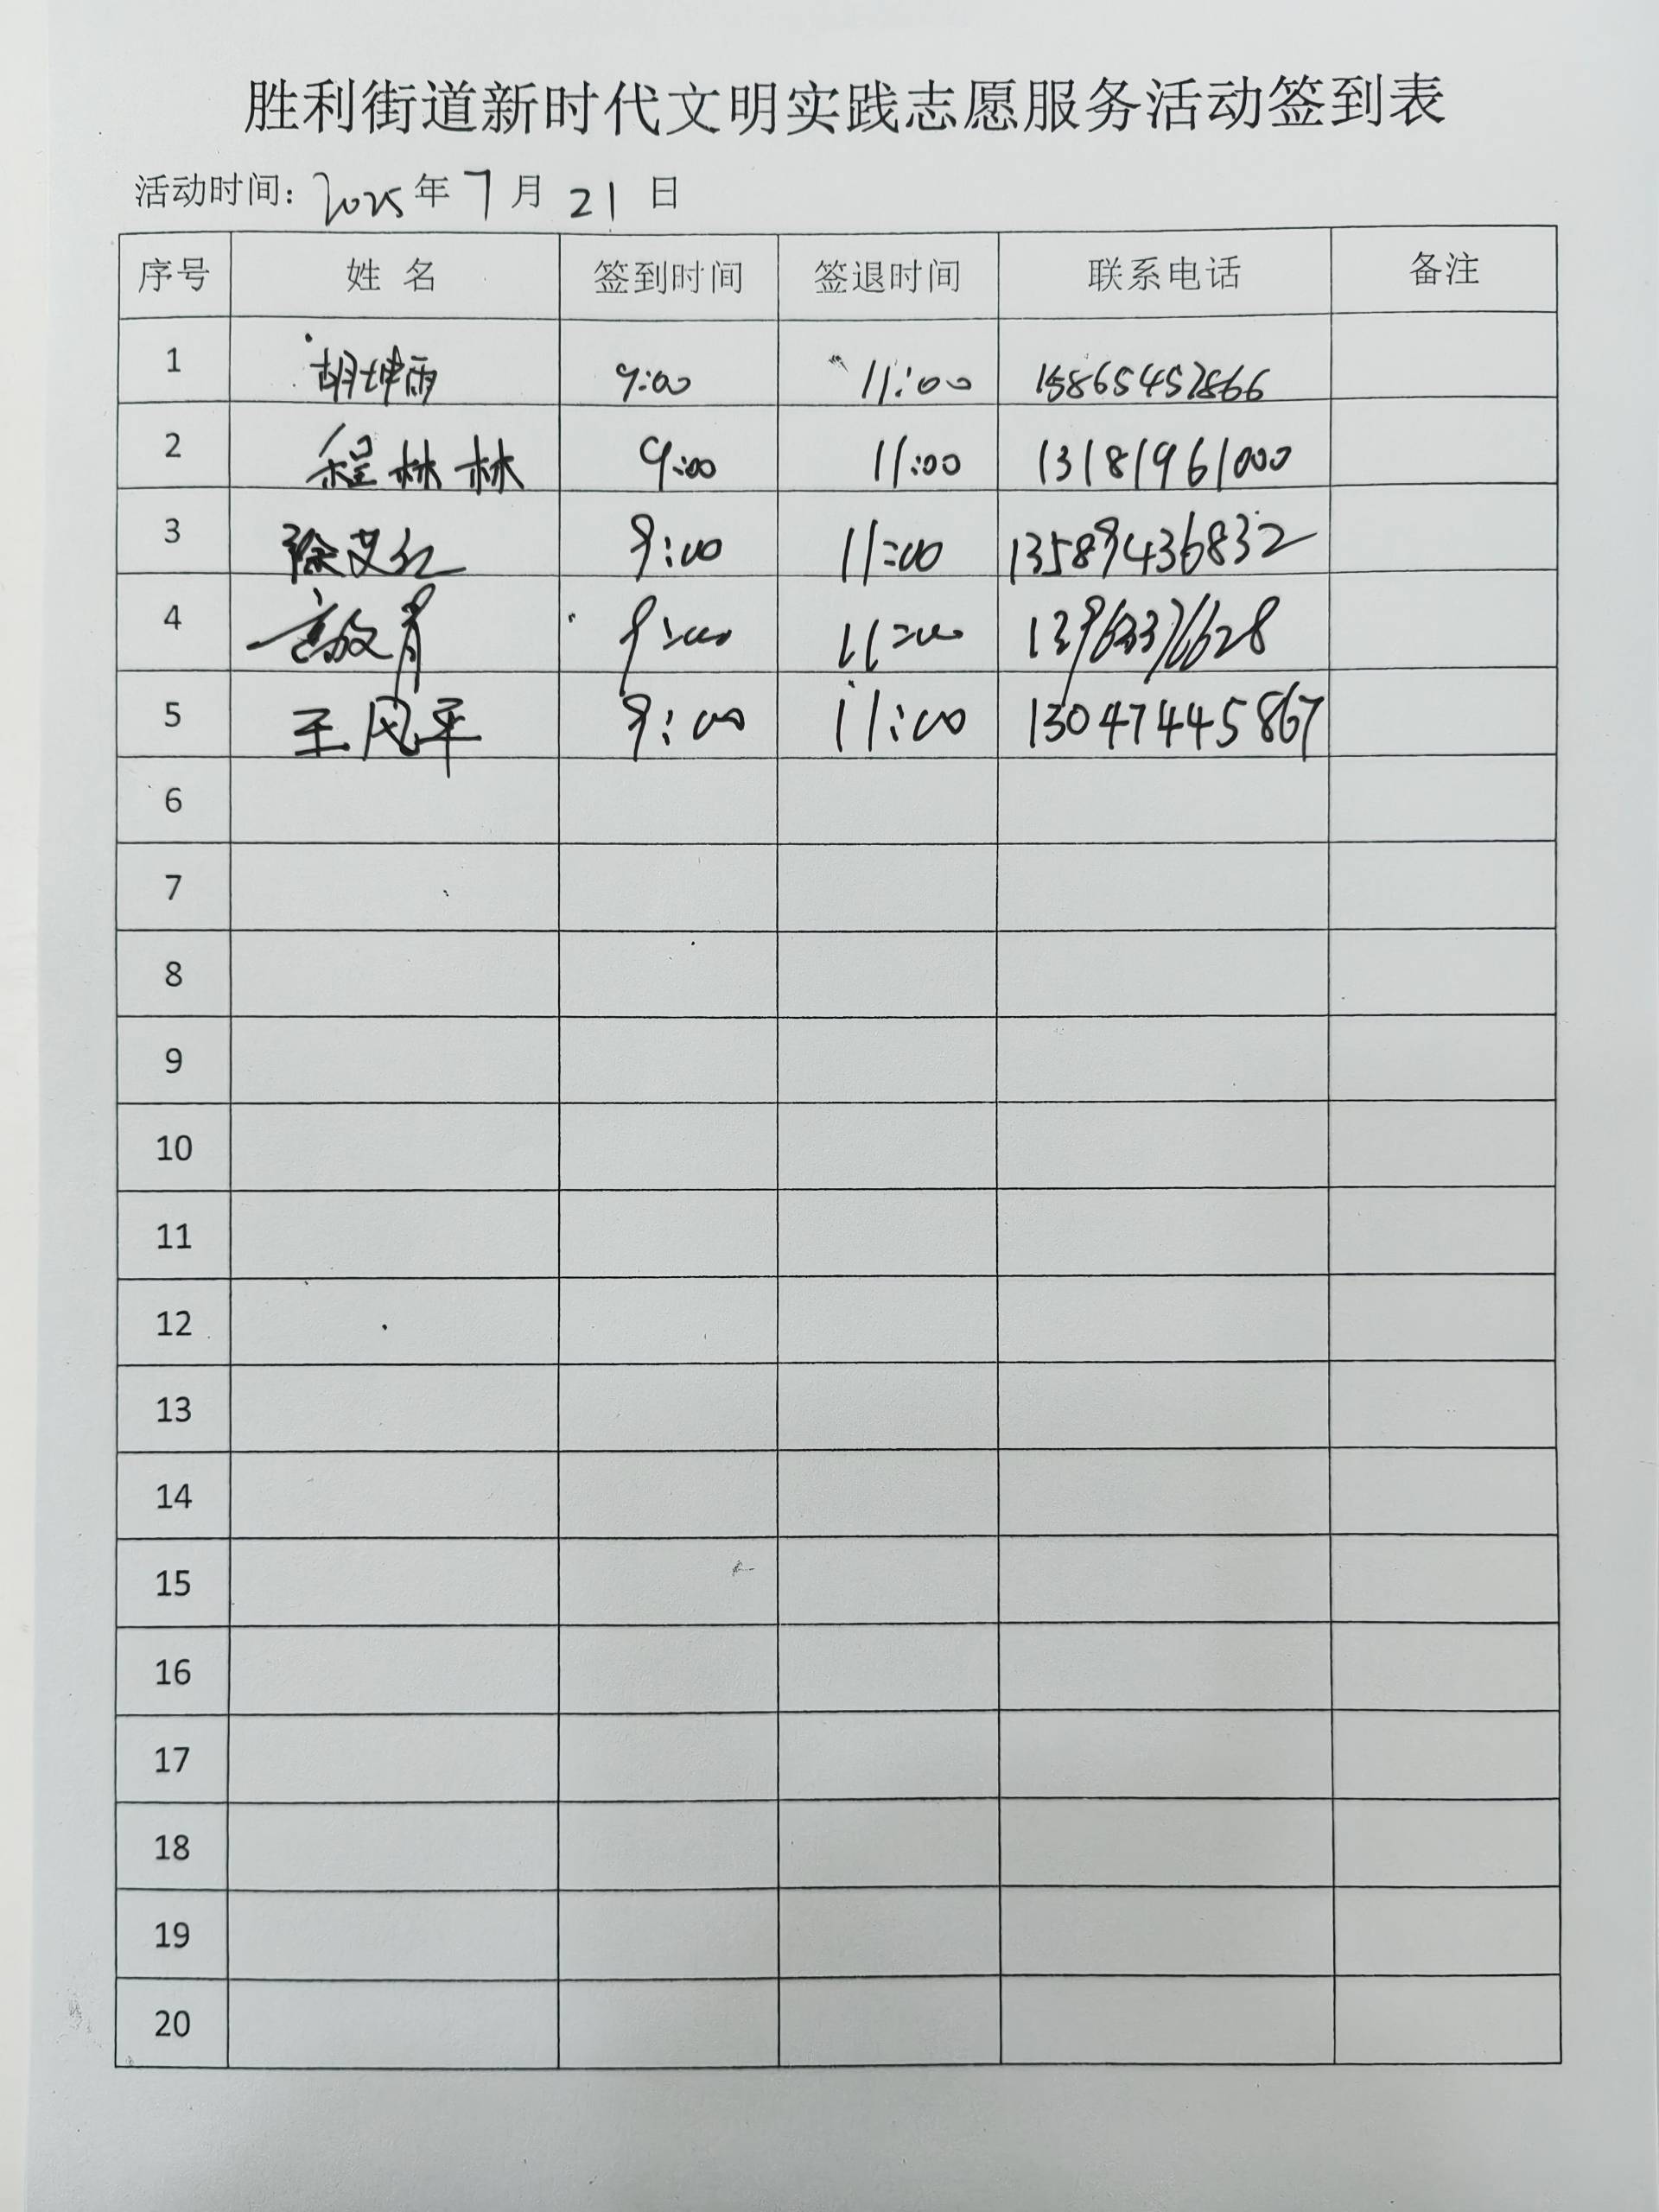 胜利街道新时代文明实践志愿服务活动签到表
活动时间: 2025 年 7 月 21 日
序号 姓 名 签到时间 签退时间 联系电话 备注
1 胡坤雨 9:00 11:00 15865457866
2 程林林 9:00 11:00 13181961000
3 徐艾红 9:00 11:00 13589436832
4 高放肖 9:00 11:00
5 王风平 9:00 11:00 13047445867
6
7
8
9
10
11
12
13
14
15
16
17
18
19
20